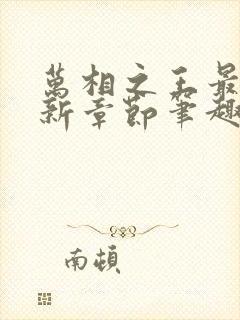 萬相之王最
新章節筆趣
南頓